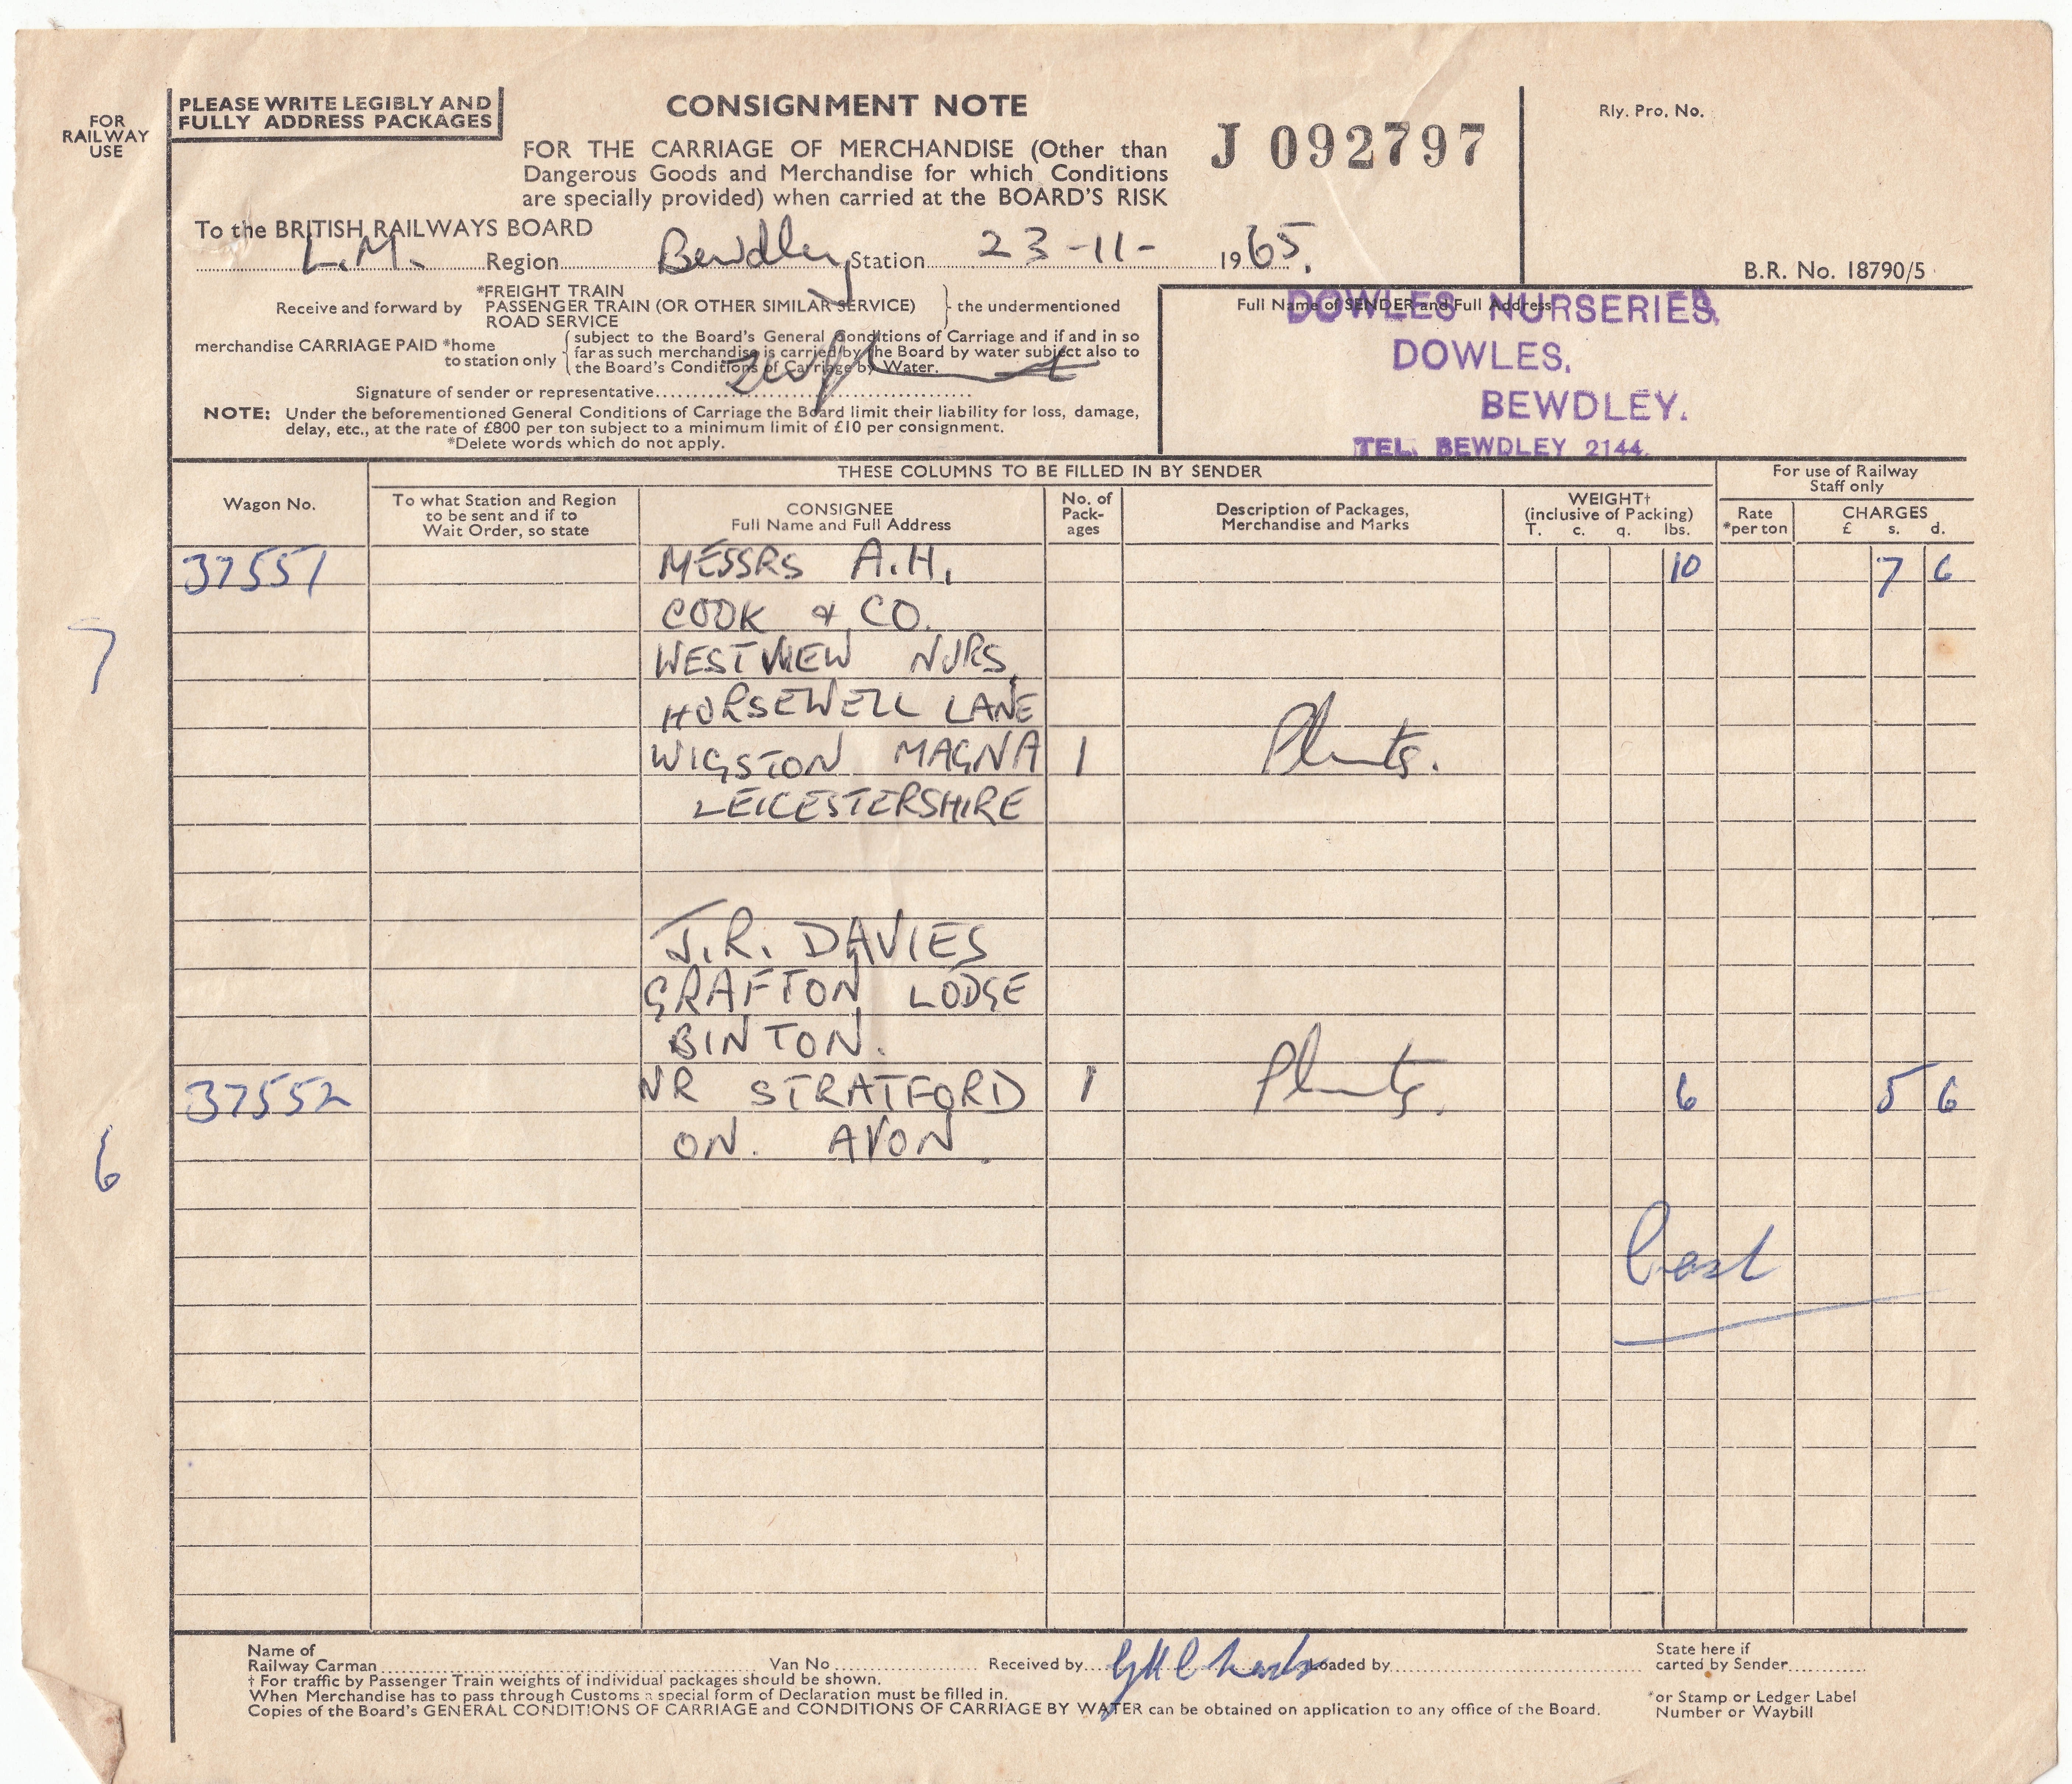 FOR
RAILWAY
USE
PLEASE WRITE LEGIBLY AND
FULLY ADDRESS PACKAGES
CONSIGNMENT NOTE
FOR THE CARRIAGE OF MERCHANDISE (Other than
Dangerous Goods and Merchandise for which Conditions
are specially provided) when carried at the BOARD'S RISK
J 092797
Rly. Pro. No.
B.R. No. 18790/5
To the BRITISH RAILWAYS BOARD
L.M. Region Bewdley Station 23-11- 1965.
Receive and forward by
*FREIGHT TRAIN
PASSENGER TRAIN (OR OTHER SIMILAR SERVICE)
ROAD SERVICE
the undermentioned
merchandise CARRIAGE PAID *home
to station only
subject to the Board's General Conditions of Carriage and if and in so
far as such merchandise is carried by the Board by water subject also to
the Board's Conditions of Carriage by Water.
Signature of sender or representative
NOTE: Under the beforementioned General Conditions of Carriage the Board limit their liability for loss, damage,
delay, etc., at the rate of £800 per ton subject to a minimum limit of £10 per consignment.
*Delete words which do not apply.
Full Name of SENDER and Full Address
DOWLES NURSERIES,
DOWLES,
BEWDLEY.
TEL. BEWDLEY 2144.
THESE COLUMNS TO BE FILLED IN BY SENDER
For use of Railway
Staff only
Wagon No.
To what Station and Region
to be sent and if to
Wait Order, so state
CONSIGNEE
Full Name and Full Address
No. of
Pack-
ages
Description of Packages,
Merchandise and Marks
WEIGHT†
(inclusive of Packing)
T. c. q. lbs.
Rate
*per ton
CHARGES
£ s. d.
37551 MESSRS A.H. 10 7 6
COOK & CO.
7 WESTVIEW NURS,
HORSEWELL LANE
WIGSTON MAGNA 1 Plants.
LEICESTERSHIRE
J.R. DAVIES
GRAFTON LODGE
BINTON.
37552 NR STRATFORD 1 Plants. 6 5 6
6 ON. AVON.
Name of
Railway Carman Van No Received by Loaded by
State here if
carted by Sender
† For traffic by Passenger Train weights of individual packages should be shown.
When Merchandise has to pass through Customs a special form of Declaration must be filled in.
Copies of the Board's GENERAL CONDITIONS OF CARRIAGE and CONDITIONS OF CARRIAGE BY WATER can be obtained on application to any office of the Board.
*or Stamp or Ledger Label
Number or Waybill